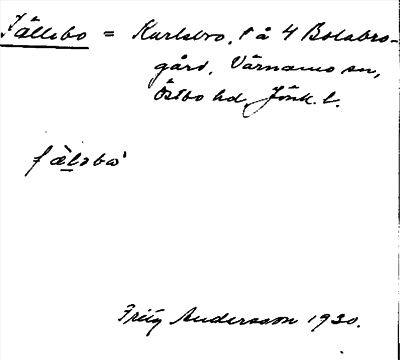 Fällsbo = Karlsbro, t å 4 Bolabro-
gård, Värnamo sn,
Östbo hd, Jönk. l.
fälsbo
Fritz Andersson 1930.